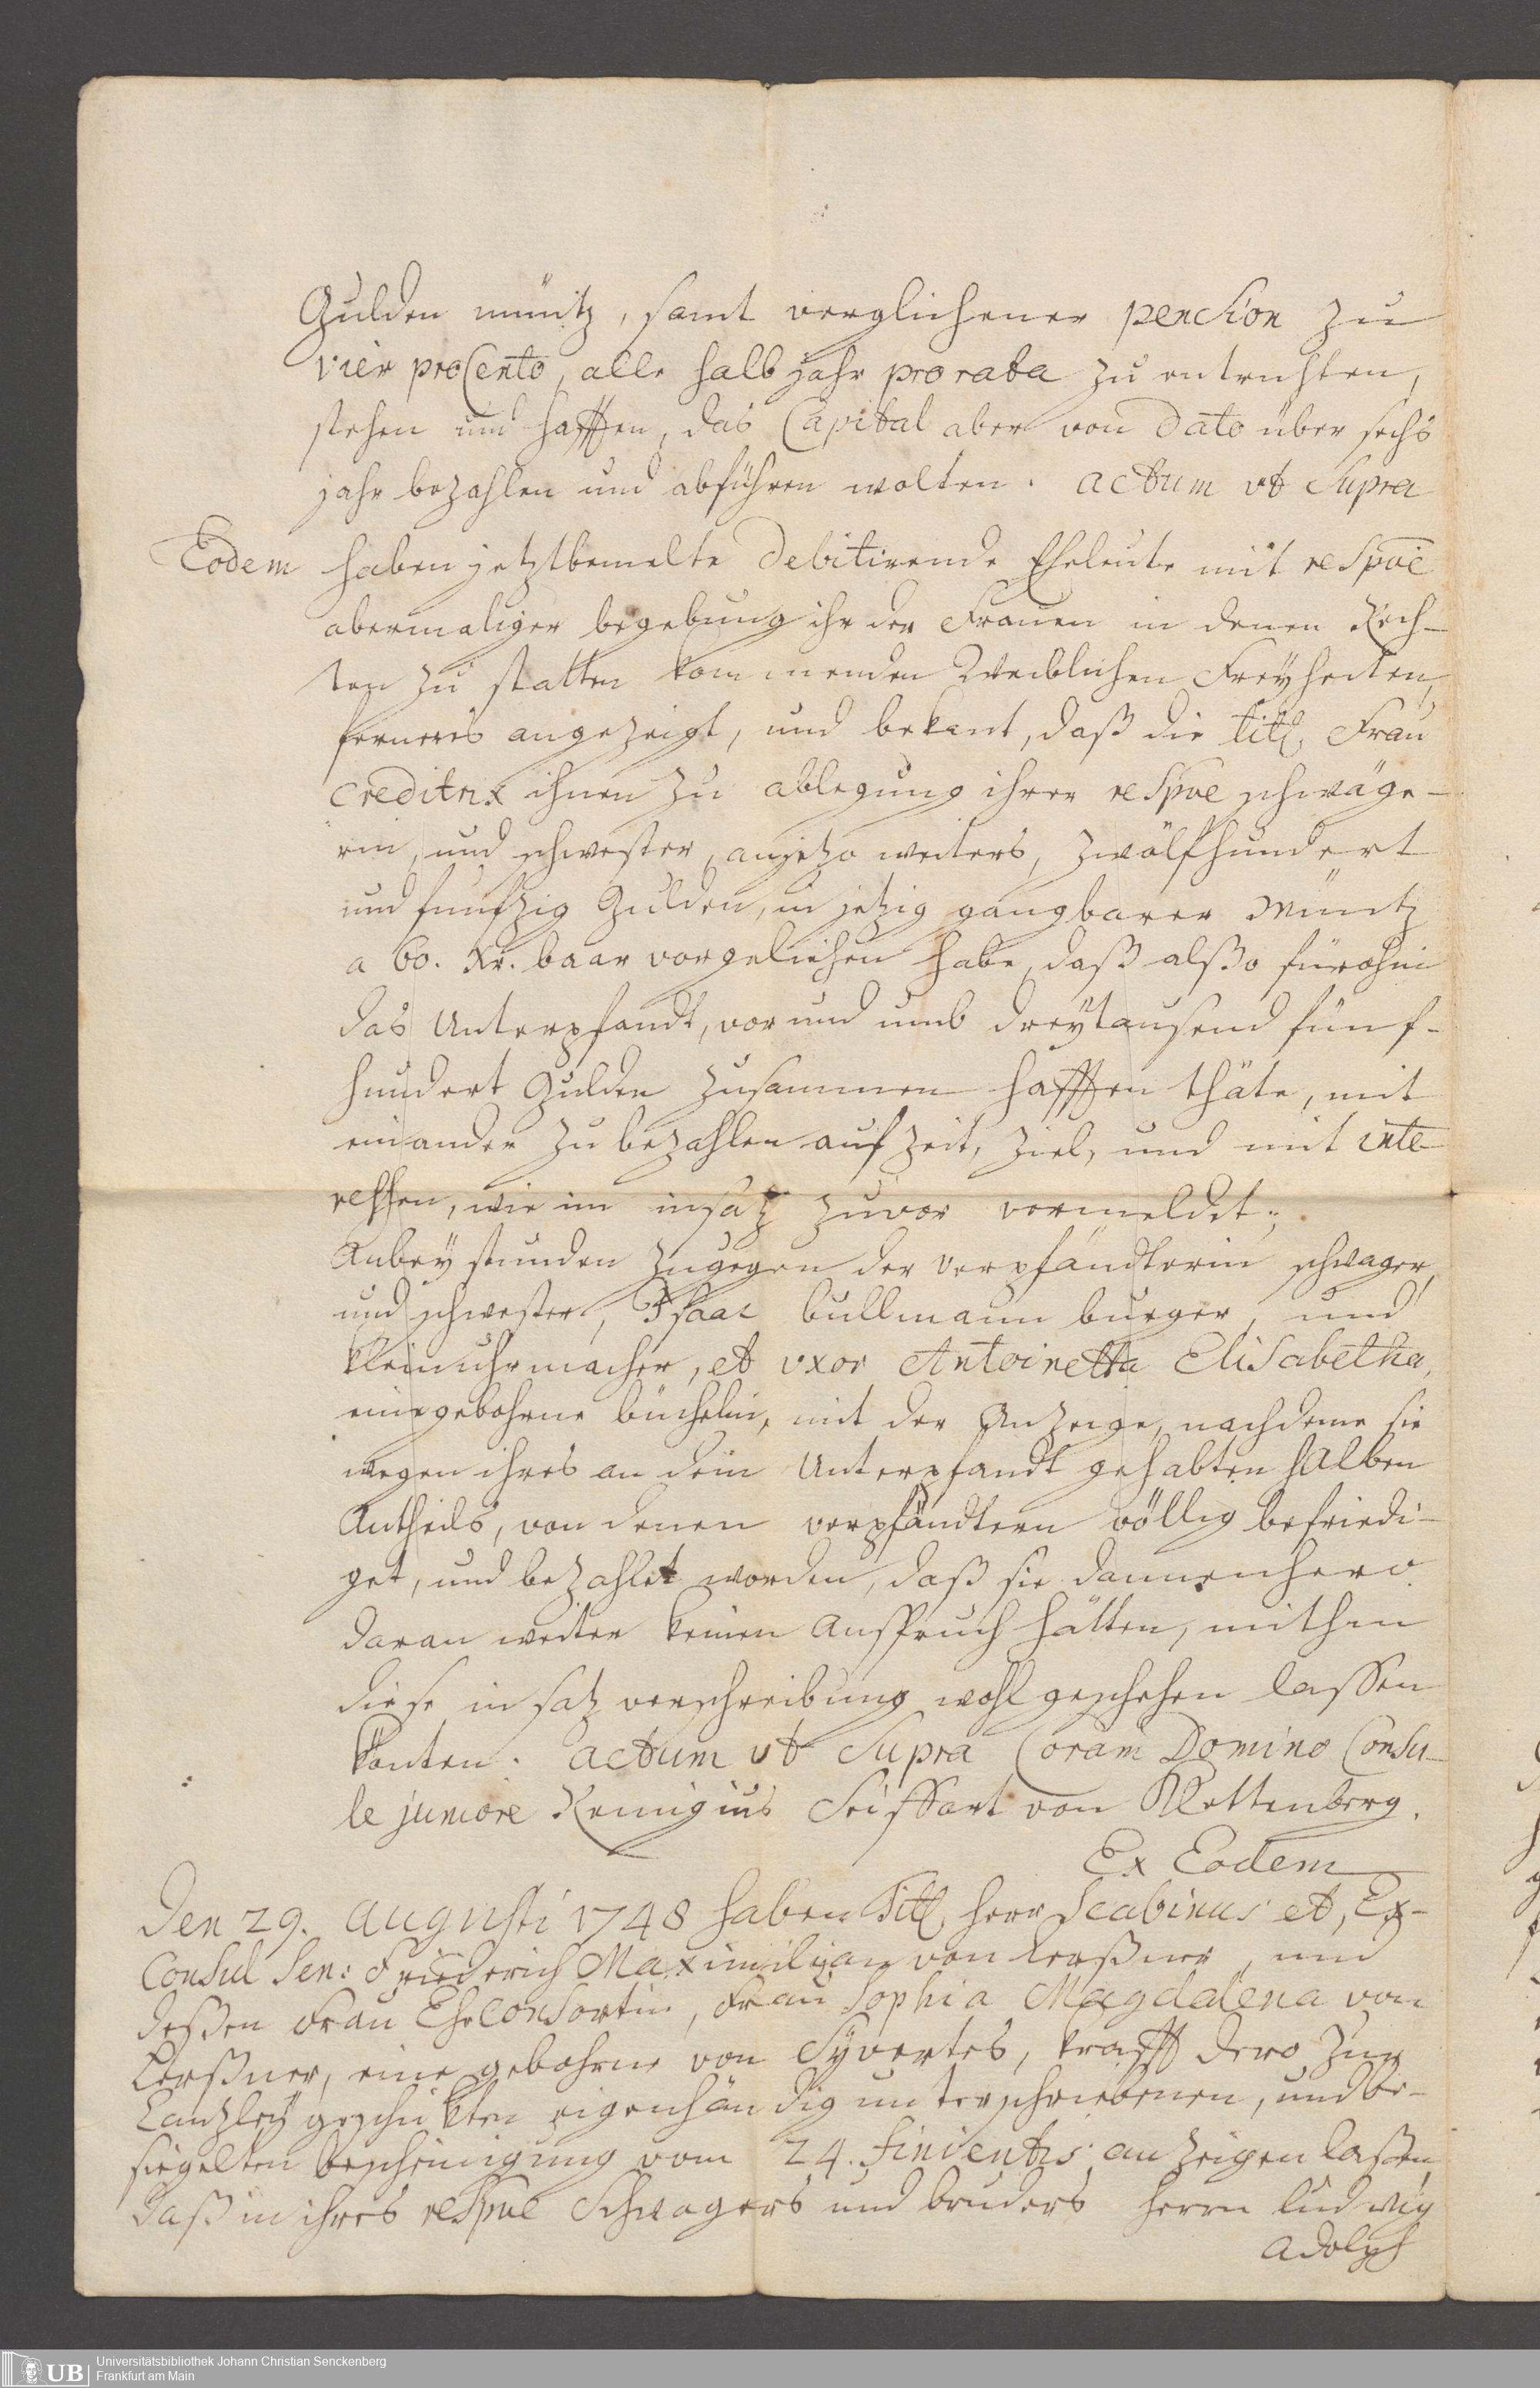 Gulden müntz, samt verglichener pension zu
vier proCento, alle halb jahr pro rata zu entrichten,
stehen und hafften, das Capital aber von dato über sechs
jahr bezahlen und abführen wolten. actum ut Supra
Eodem haben jetztbemelte debitirende Eheleute mit respve
abermaliger begebung ihr der Frauen in denen Rech-
ten zu statten kommenden Weiblichen Freyheiten,
ferneres angezeigt, und bekant, daß die titl. Frau
Creditrix ihnen zu ablegung ihrer respve schwäge-
rin, und schwester, anjetzo weiters, zwölfhundert
und funfzig Gulden, in jetzig gangbarer Müntz
a 60. Xr. baar vorgeliehen habe, daß alßo fürohin
das Unterpfandt, vor und umb dreytausend fünf-
hundert Gulden zusammen hafften thäte, mit
einander zu bezahlen auf zeit, ziel, und mit inte-
ressen, wie im insatz zuvor vermeldet;
Anbey stunden zugegen der verpfändterin schwager,
und schwester, Isaac bullmann burger, und
kleinuhrmacher, et uxor Antoinetta Elisabetha,
eine gebohrne büchelin, mit der Anzeige, nachdeme sie
wegen ihres an dem Unterpfandt gehabten halben
Antheils, von denen verpfändtern völlig befriedi-
get, und bezahlet worden, daß sie dannenhero
daran weiter keinen Anspruch hätten, mithin
diese insatz verschreibung wohl geschehen lassen
könten. actum ut Supra Coram Domino Consu-
le juniore Remigius Seiffart von Klettenberg.
Ex Eodem
Den 29. Augusti 1748 haben Titl. herr Scabinus et, Ex-
Consul Sen: Friederich Maximilian von Lerßner, und
deßen Frau EheConsortin, Frau Sophia Magdalena von
Lerßner, eine gebohrne von Syvertes, krafft dero zur
Canzley geschickten eigenhändig unterschriebenen, und be-
siegelten bescheinigung vom 24. finientis anzeigen laßen,
daß in ihres respve Schwagers und bruders herrn Ludwig
Adolph
UB Universitätsbibliothek Johann Christian Senckenberg
Frankfurt am Main